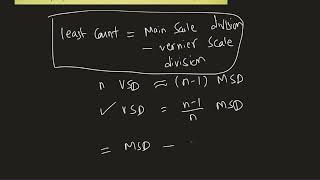 least Count = Main Scale division
- vernier Scale
division
n VSD ≈ (n-1) MSD
✓ VSD = n-1/n MSD
= MSD -